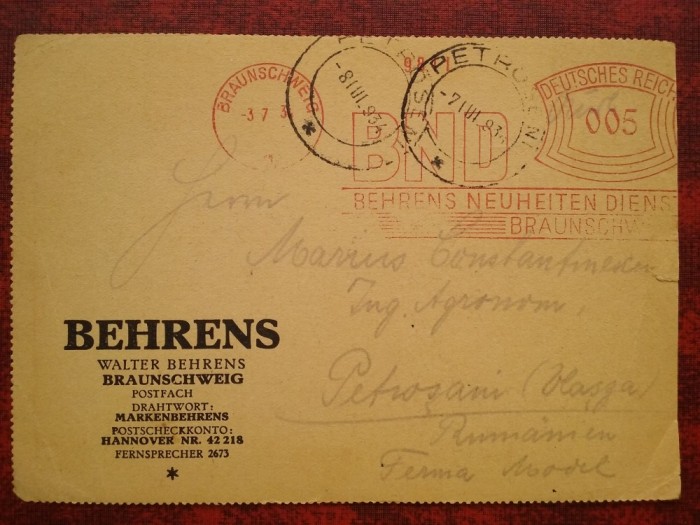 BRAUNSCHWEIG
-3 7 3
PETROSENI
-8 IUL 934
PETROSENI
-7 IUL 93
DEUTSCHES REICH
005
BND
BEHRENS NEUHEITEN DIENST
BRAUNSCHW
Herrn
Marius Constantinescu
Ing. Agronom,
Petroşani (Hasga)
Rumänien
Ferma Model
BEHRENS
WALTER BEHRENS
BRAUNSCHWEIG
POSTFACH
DRAHTWORT:
MARKENBEHRENS
POSTSCHECKKONTO:
HANNOVER NR. 42 218
FERNSPRECHER 2673
*